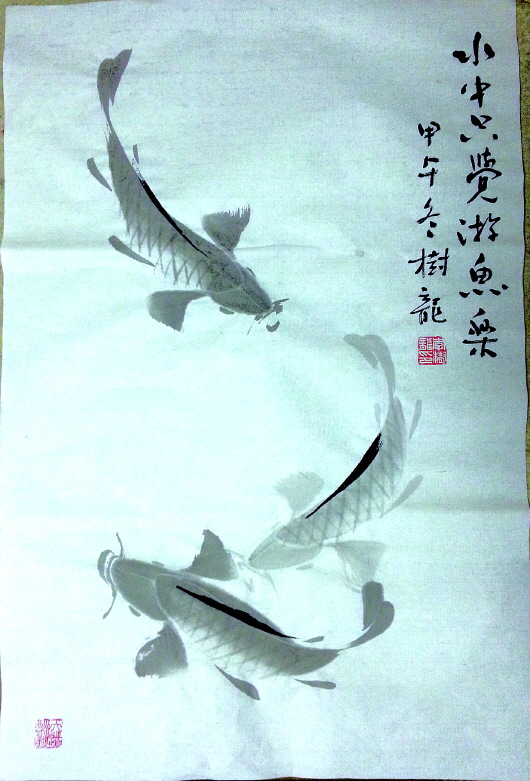 水中只覺游魚樂
甲午冬樹龍